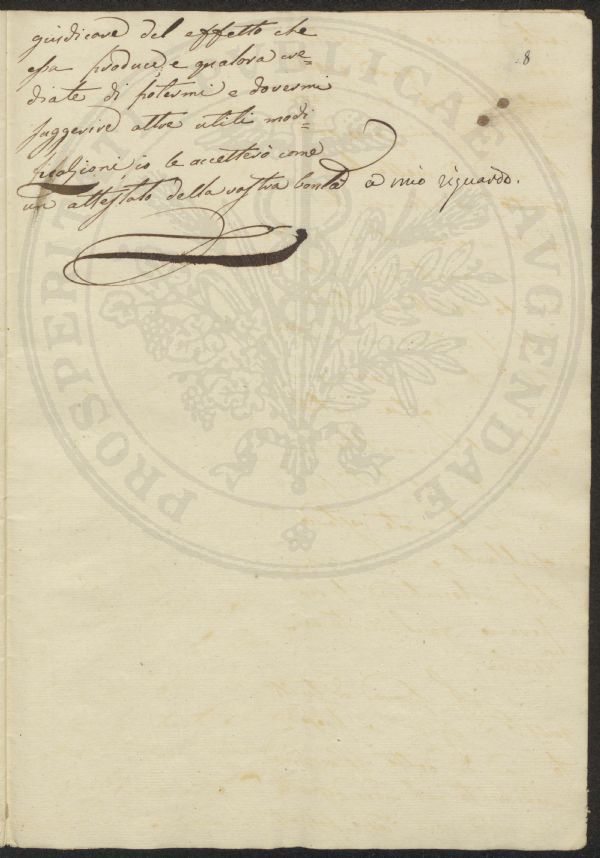 8
giudicare del effetto che
essa produce, e qualora cre=
diate di potermi e dovermi
suggerire altre utili modi=
ficazioni io le accetterò come
un attestato della vostra bontà a mio riguardo.
PROSPERITATI PUBLICAE AVGENDAE